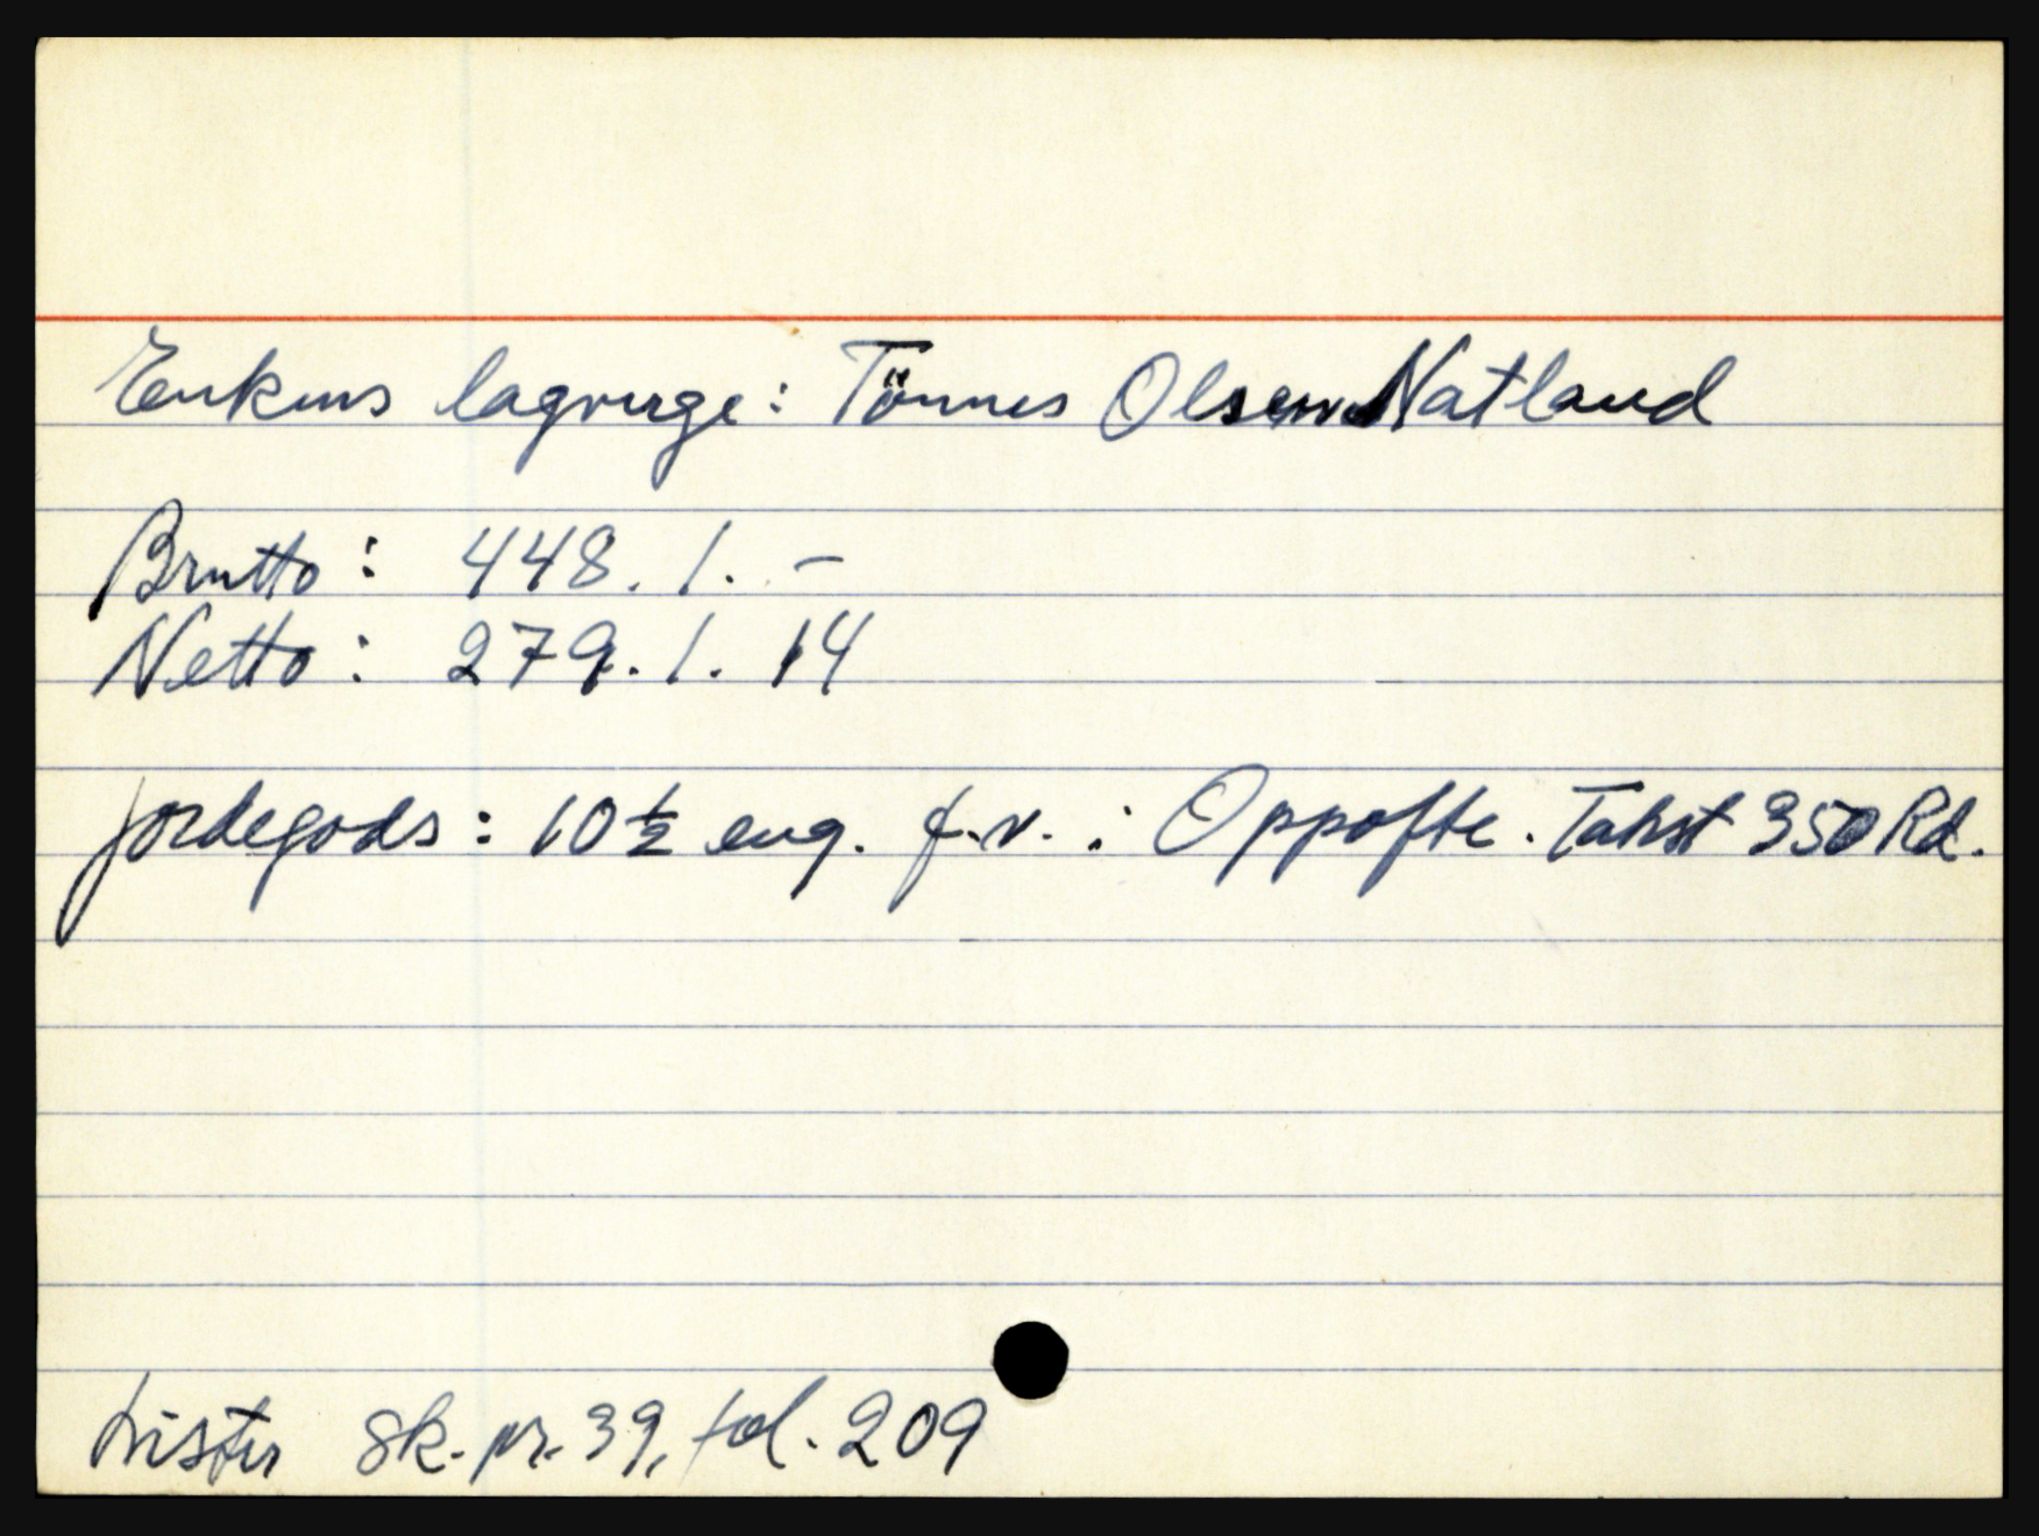 Enkens lagverge: Tönnes Olsen Natland
Brutto: 448. 1. -
Netto: 279. 1. 14
Jordegods: 10 ½ eng. f.v. i Oppofte. Takst 350 Rd.
Lister sk. pr. 39, fol. 209